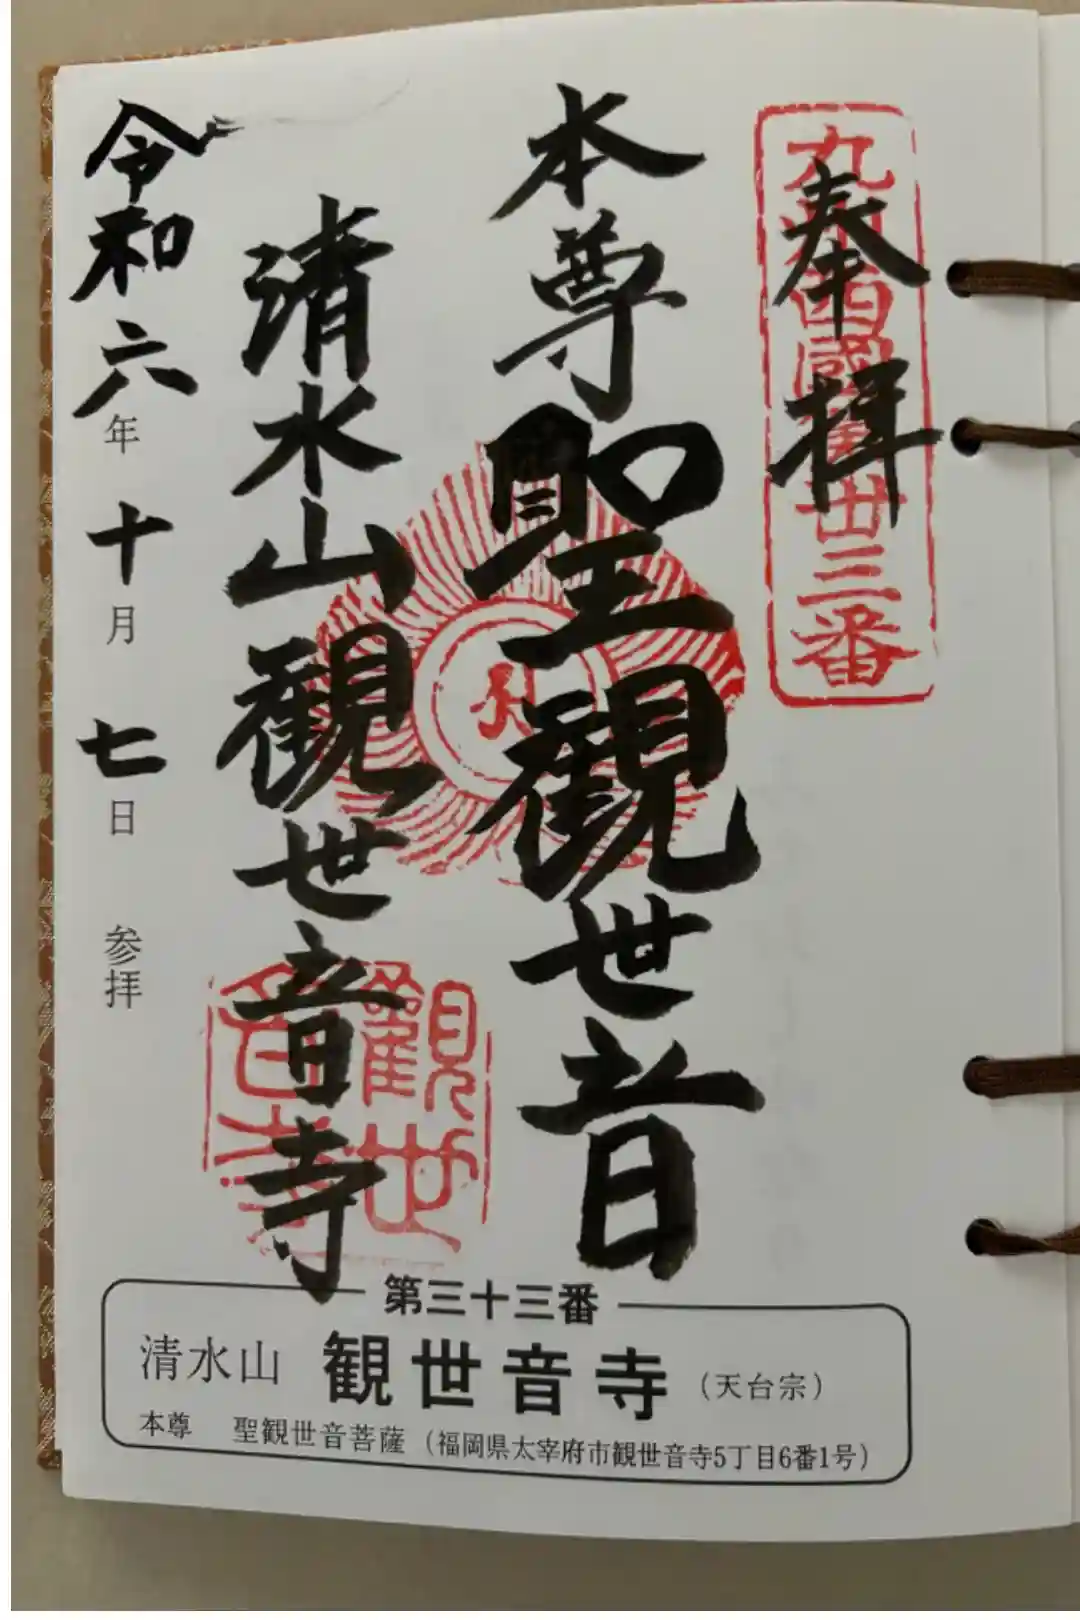 奉拝
九州西國第廿三番
本尊聖観世音
清水山観世音寺
観世音寺
令和六年十月七日参拝
第三十三番
清水山 観世音寺 (天台宗)
本尊 聖観世音菩薩 (福岡県太宰府市観世音寺5丁目6番1号)